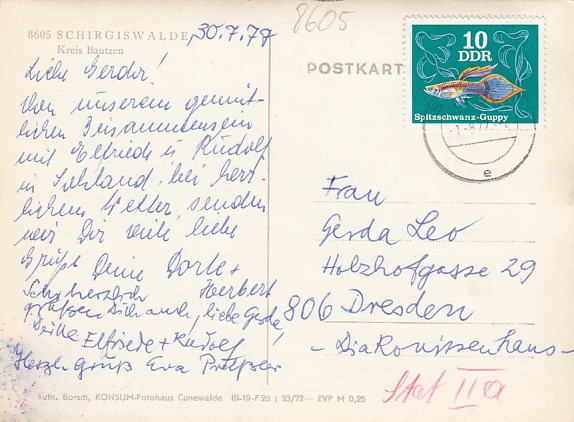 8605
8605 SCHIRGISWALDE
Kreis Bautzen
30.7.77
POSTKART
10
DDR
Spitzschwanz-Guppy
e
Liebe Gerda!
Von unserem gemüt-
lichen Beisammensein
mit Elfriede u. Rudolf
in Sohland bei herr-
lichem Wetter, senden
wir Dir viele liebe
Grüße Deine Dorle +
Herbert
Sehr herzlich
grüßen Dich auch, liebe Gerda!
Deine Elfriede + Rudolf
Herzl. Gruß Eva
Frau
Gerda Leo
Holzhofgasse 29
806 Dresden
- Diakonissenhaus -
Stat IIa
Aufn. Borsch, KONSUM-Fotohaus Cunewalde III-19-F 20 33/72 — EVP M 0,25